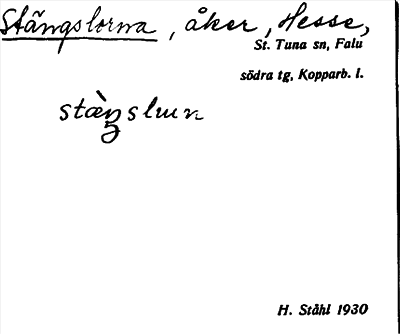 Stängslorna, åker, Hesse,
St. Tuna sn, Falu
södra tg, Kopparb. l.
H. Ståhl 1930